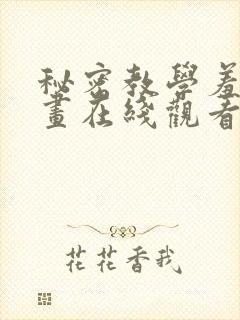 秘密教學羞
畫在綫觀看
花花香我